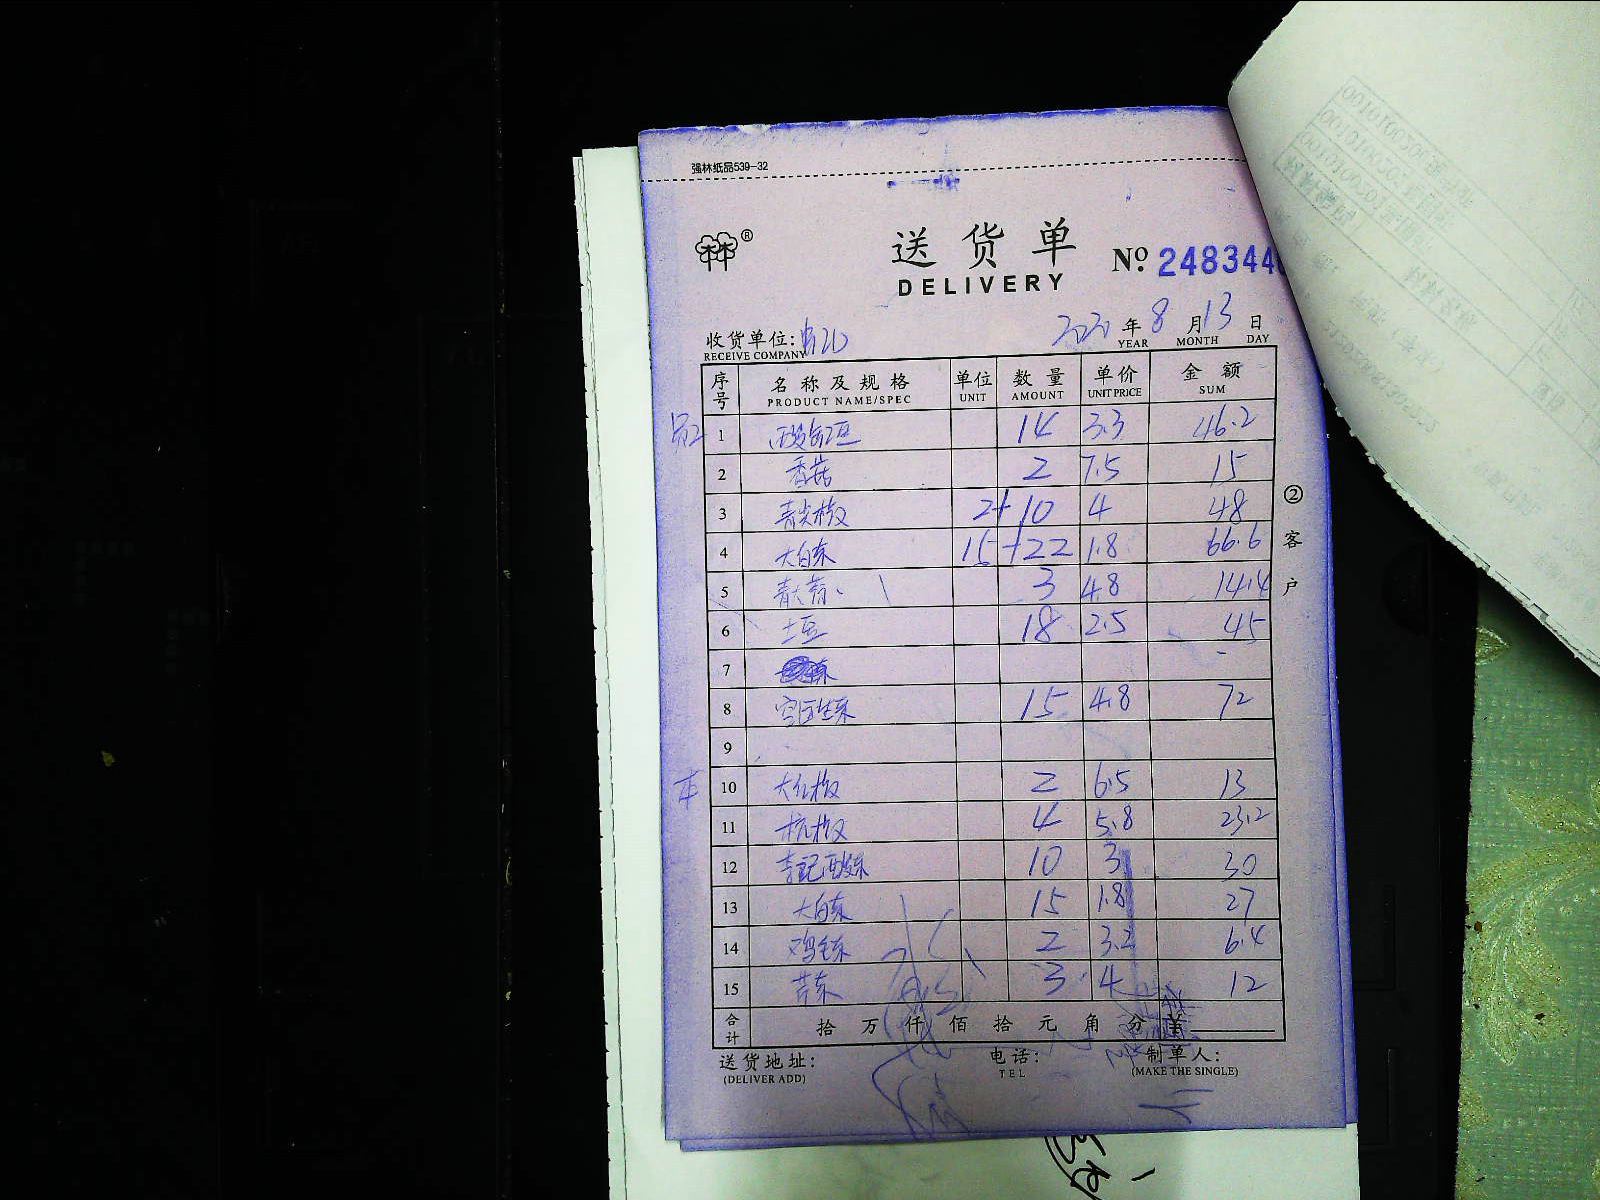 强林纸品539-32
送货单
DELIVERY
№ 248344
收货单位:
RECEIVE COMPANY
2021 年 8 月 13 日
YEAR MONTH DAY
序号 名称及规格 单位 数量 单价 金额
PRODUCT NAME/SPEC UNIT AMOUNT UNIT PRICE SUM
1 酸豇豆 14 3.3 46.2
2 香菇 2 7.5 15
3 青尖椒 2+10 4 48
4 大白菜 15+22 1.8 66.6
5 青大蒜 3 4.8 14.4
6 土豆 18 2.5 45
7
8 15 4.8 72
9
10 大红椒 2 6.5 13
11 杭椒 4 5.8 23.2
12 李记酸菜 10 3 30
13 大白菜 15 1.8 27
14 鸡毛菜 2 3.2 6.4
15 苦菜 3 4 12
合计 拾 万 仟 佰 拾 元 角 分
②客户
送货地址: 电话: 制单人:
(DELIVER ADD) TEL (MAKE THE SINGLE)